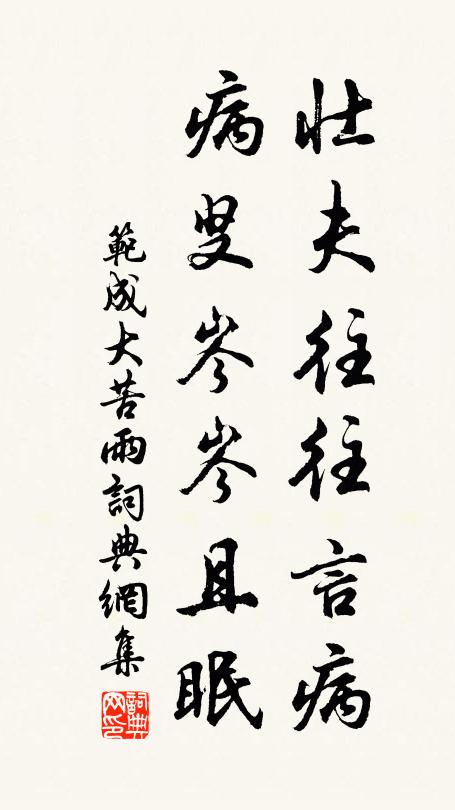 壯夫往往言病
病叟岑岑且眠
範成大苦雨詞典網集
詞典網印